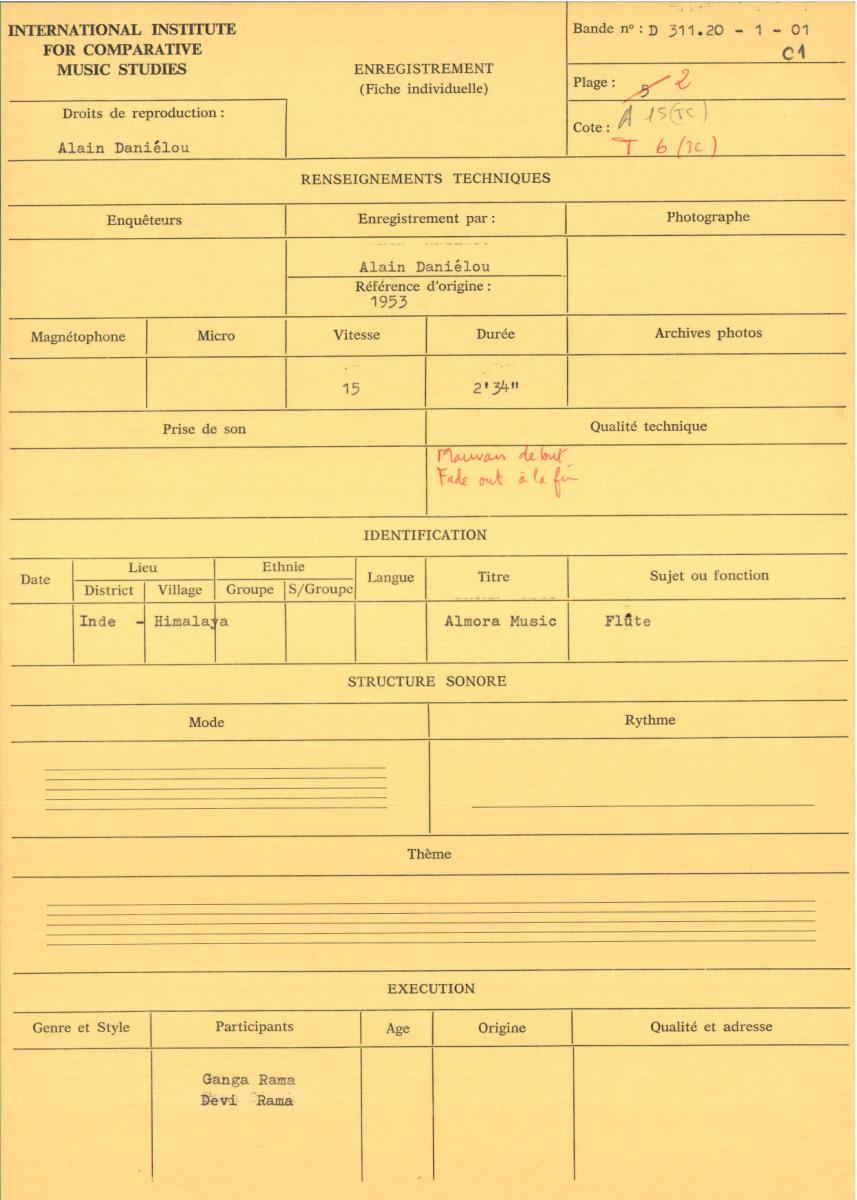 INTERNATIONAL INSTITUTE
FOR COMPARATIVE
MUSIC STUDIES
Droits de reproduction :
Alain Daniélou
ENREGISTREMENT
(Fiche individuelle)
Bande nº : D 311.20 - 1 - 01
01
Plage : 5 2
Cote : A 15 (TC)
T 6 (TC)
RENSEIGNEMENTS TECHNIQUES
Enquêteurs
Enregistrement par :
Photographe
Alain Daniélou
Référence d'origine :
1953
Magnétophone
Micro
Vitesse
Durée
Archives photos
15
2'34"
Prise de son
Qualité technique
Mauvais debut
Fade out à la fin
IDENTIFICATION
Date
Lieu
Ethnie
Langue
Titre
Sujet ou fonction
District
Village
Groupe
S/Groupe
Inde - Himalaya
Almora Music
Flûte
STRUCTURE SONORE
Mode
Rythme
Thème
EXECUTION
Genre et Style
Participants
Age
Origine
Qualité et adresse
Ganga Rama
Devi Rama